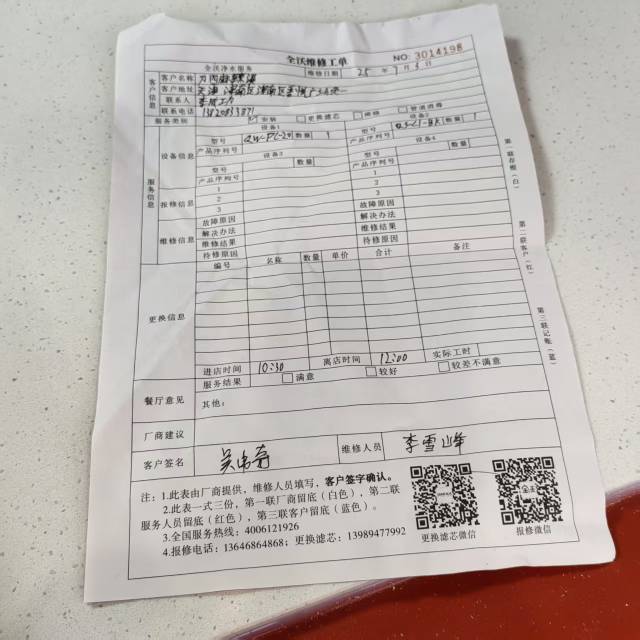 全沃维修工单
全沃净水服务 维修日期 25 年 7 月 5 日 NO. 3014198
客户信息
客户名称
客户地址
联系人
服务类别 安装 更换滤芯 维修 管道清移
服务信息
设备信息
设备1 设备2
型号 数量 1 型号 数量 1
产品序列号 产品序列号
设备3 数量 设备4 数量
型号 型号
产品序列号 产品序列号
报修信息
1 1
2 2
3 3
维修信息
故障原因 故障原因
解决办法 解决办法
维修结果 维修结果
待修原因 待修原因
更换信息
编号 名称 数量 单价 合计 备注
进店时间 10:30 离店时间 12:00 实际工时
服务结果 满意 较好 较差不满意
餐厅意见 其他:
厂商建议
客户签名 维修人员 李雪峰
注:1.此表由厂商提供,维修人员填写,客户签字确认。
2.此表一式三份,第一联厂商留底(白色),第二联
服务人员留底(红色),第三联客户留底(蓝色)。
3.全国服务热线:4006121926
4.报修电话:13646864868;更换滤芯:13989477992
更换滤芯微信 报修微信
第一联存根(白)
第二联客户(红)
第三联记帐(蓝)